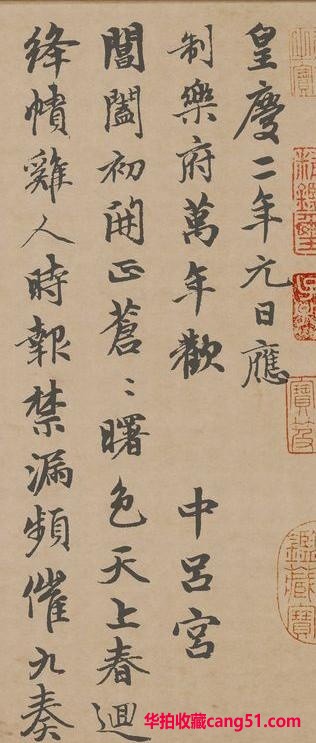 皇慶二年元日應
制樂府萬年歡 中呂宮
閶闔初開正蒼〻曙色天上春迴
絳幘雞人時報禁漏頻催九奏
鑑藏寶
华拍收藏cang51.com